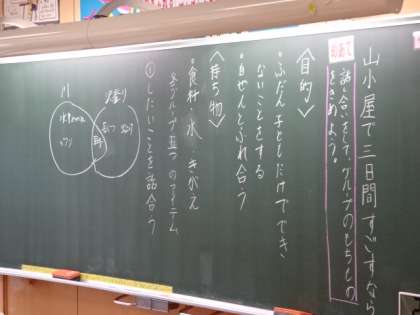 山小屋で三日間すごすなら
めあて
話し合いをして、グループのもちもの
をきめよう。
〈目的〉
・ふだん子どもだけででき
ないことをする
・自ぜんとふれ合う
〈持ち物〉
・食料・水・きがえ
各グループ五つのアイテム
①したいことを話合う
川